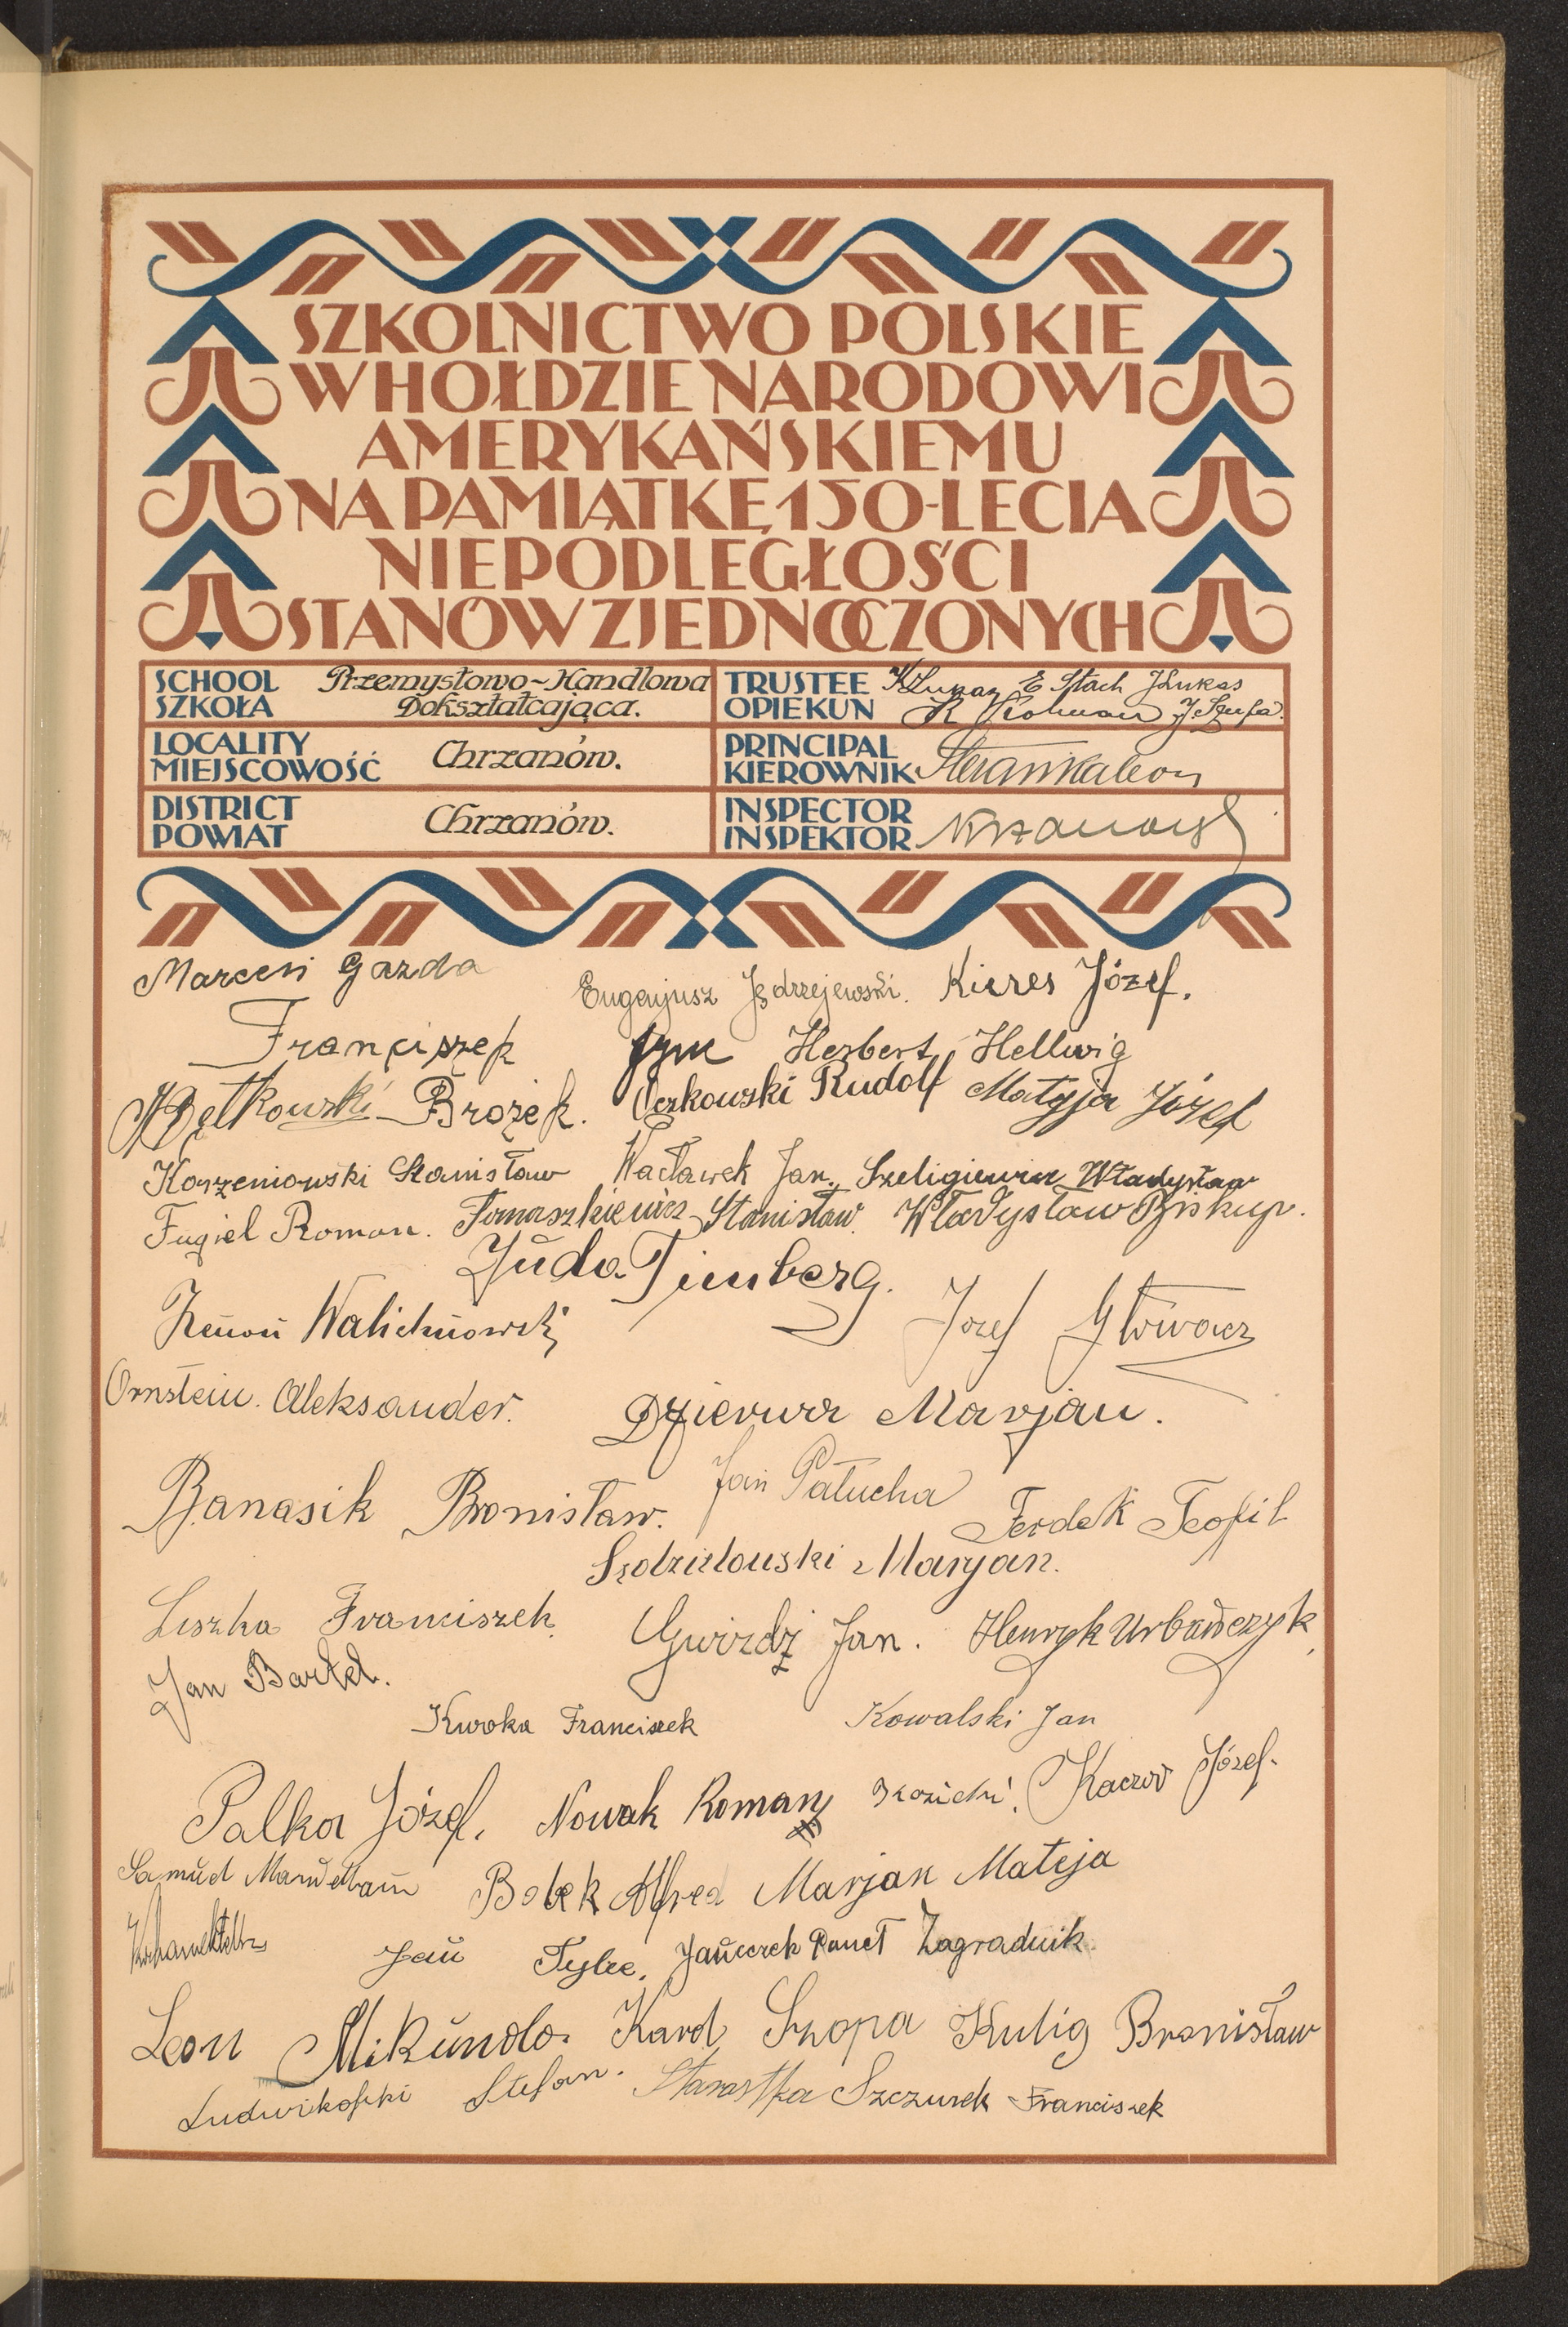 SZKOLNICTWO POLSKIE
W HOŁDZIE NARODOWI
AMERYKAŃSKIEMU
NA PAMIĄTKĘ 150-LECIA
NIEPODLEGŁOŚCI
STANÓW ZJEDNOCZONYCH
SCHOOL SZKOŁA Przemysłowo-Handlowa Dokształcająca.
TRUSTEE OPIEKUN E Stach JLukas
LOCALITY MIEJSCOWOŚĆ Chrzanów.
PRINCIPAL KIEROWNIK
DISTRICT POWIAT Chrzanów.
INSPECTOR INSPEKTOR
Marceli Gazda Eugenjusz Jędrzejewski. Kieres Józef.
Franciszek Herbert Hellwig
Brożek. Rudolf Matyja Józef
Korzeniowski Stanisław Wacławek Jan. Szeligiewicz Władysław
Fugiel Roman. Tomaszkiewicz Stanisław. Władysław Biskup.
Juda Timberg.
Zenon Walichnowski Józef Głowacz
Ornstein. Aleksander. Dzierwa Marjan.
Banasik Bronisław. Jan Pałucha Ferdek Teofil
Sędzielowski Marjan.
Liszka Franciszek. Gwizdż Jan. Henryk Urbańczyk
Jan Bartel.
Kwoka Franciszek Kowalski Jan
Palka Józef. Nowak Roman Kozicki. Kaczor Józef.
Samuel Mandelbaum Bobek Alfred Marjan Mateja
Jan Tylec. Janeczek Paweł Zagradnik
Leon Mikunda. Karol Szopa Kulig Bronisław
Ludwikowski Stefan. Starostka Szczurek Franciszek